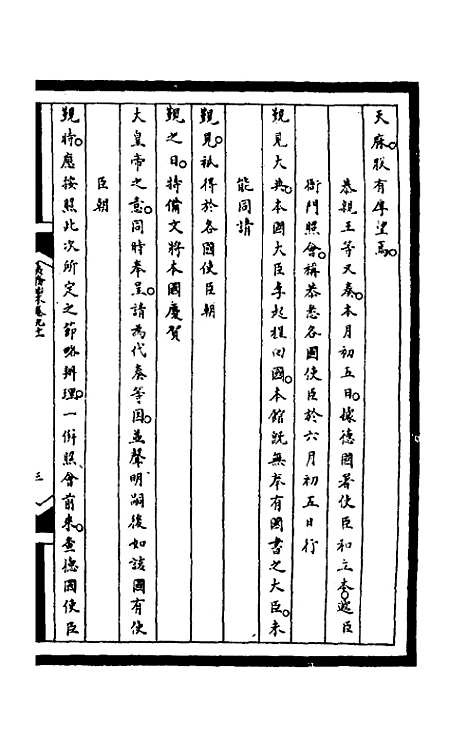 天庥。朕有厚望焉。
恭親王等又奏。本月初五日。據德國署使臣和立本。遞臣
衙門照會。稱恭悉各國使臣於六月初五日行
覲見大典。本國大臣早起程回國。本館既無奉有國書之大臣。未
能同請
覲見。祇得於各國使臣朝
覲之日。特備文將本國慶賀
大皇帝之意。同時奉呈。請為代奏等因。並聲明嗣後如該國有使
臣朝
覲時。應按照此次所定之節略辦理。一併照會前來。查德國使臣
三